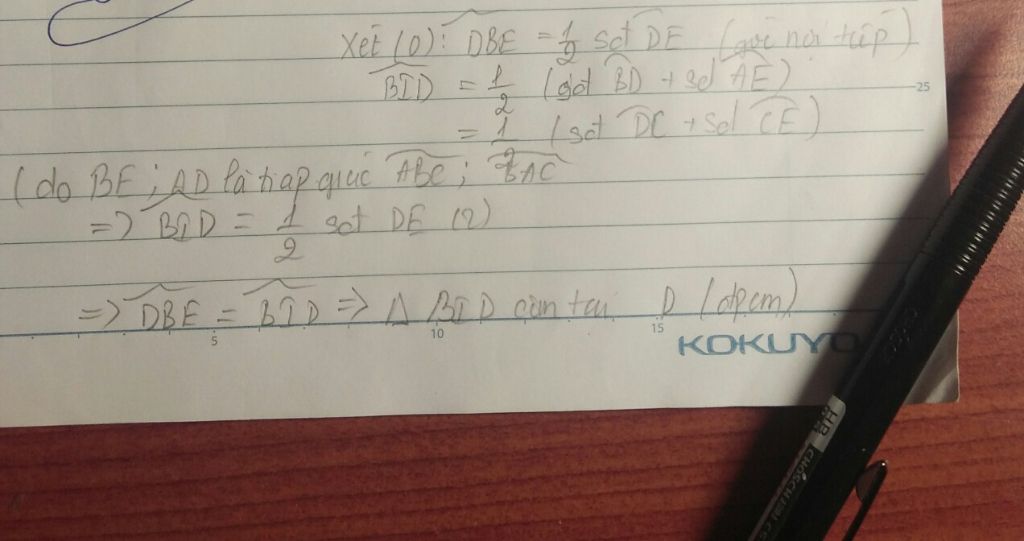 Xét (O): DBE = 1/2 sđt DE (góc nội tiếp)
BID = 1/2 (sđt BD + sđ AE)
25
= 1/2 (sđt DC + sđ CE)
(do BE; AD là phân giác ABC; BAC
=> BID = 1/2 sđt DE (2)
=> DBE = BID => Δ BID cân tại D (đpcm)
5 10 15
KOKUYO
HB